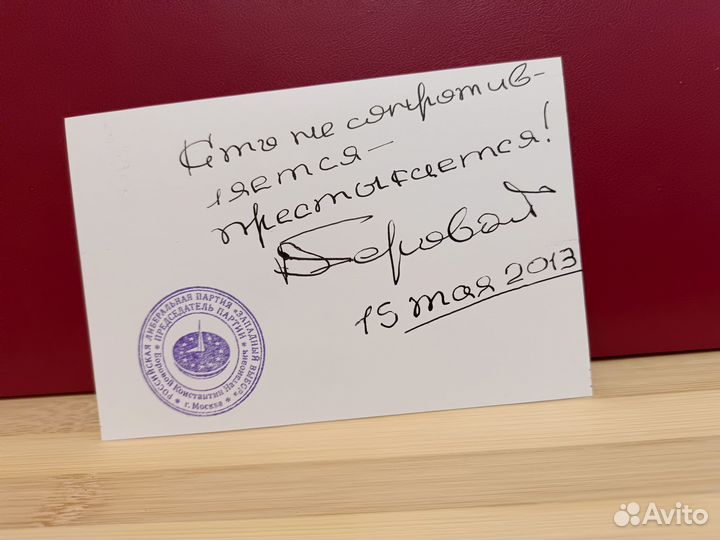 Кто не сопротив-
ляется -
престыкается!
Боровой
15 мая 2013
РОССИЙСКАЯ ЛИБЕРАЛЬНАЯ ПАРТИЯ «ЗАПАДНЫЙ ВЫБОР»
ПРЕДСЕДАТЕЛЬ ПАРТИИ
Боровой Константин Натанович
г. Москва
Avito